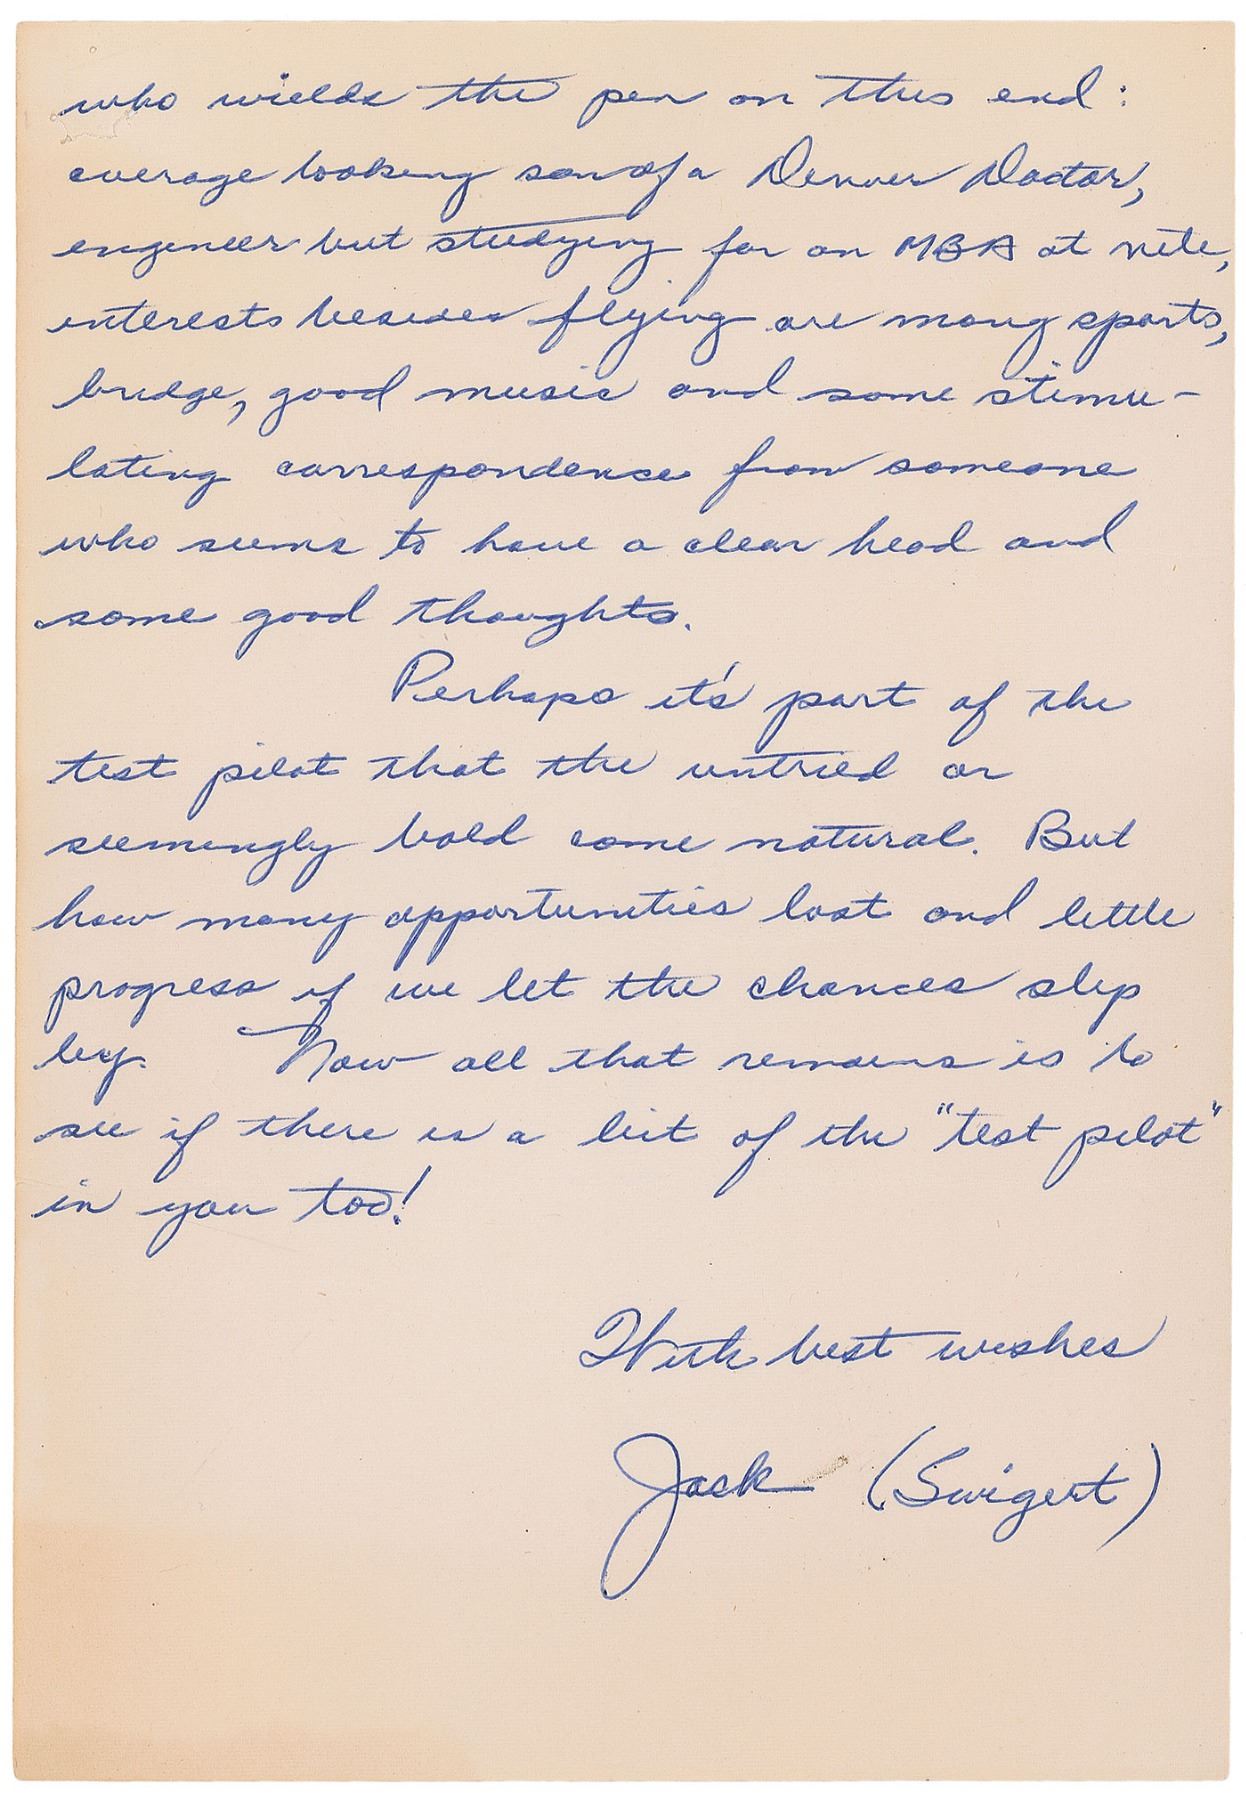 who wields the pen on this end:
average looking son of a Denver Doctor,
engineer but studying for an MBA at nite,
interests besides flying are many sports,
bridge, good music and some stimu-
lating correspondence from someone
who seems to have a clear head and
some good thoughts.
Perhaps it's part of the
test pilot that the untried or
seemingly bold come natural. But
how many opportunities lost and little
progress if we let the chances slip
by. Now all that remains is to
see if there is a bit of the "test pilot"
in you too!
With best wishes
Jack (Swigert)